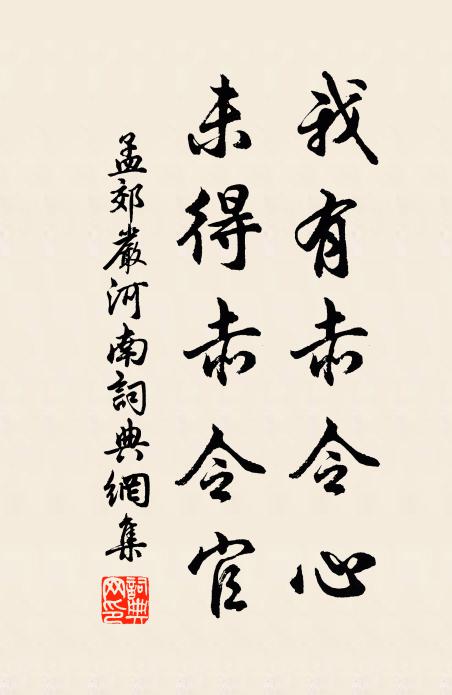 我有赤令心
未得赤令官
孟郊嚴河南詞典網集
詞典網印